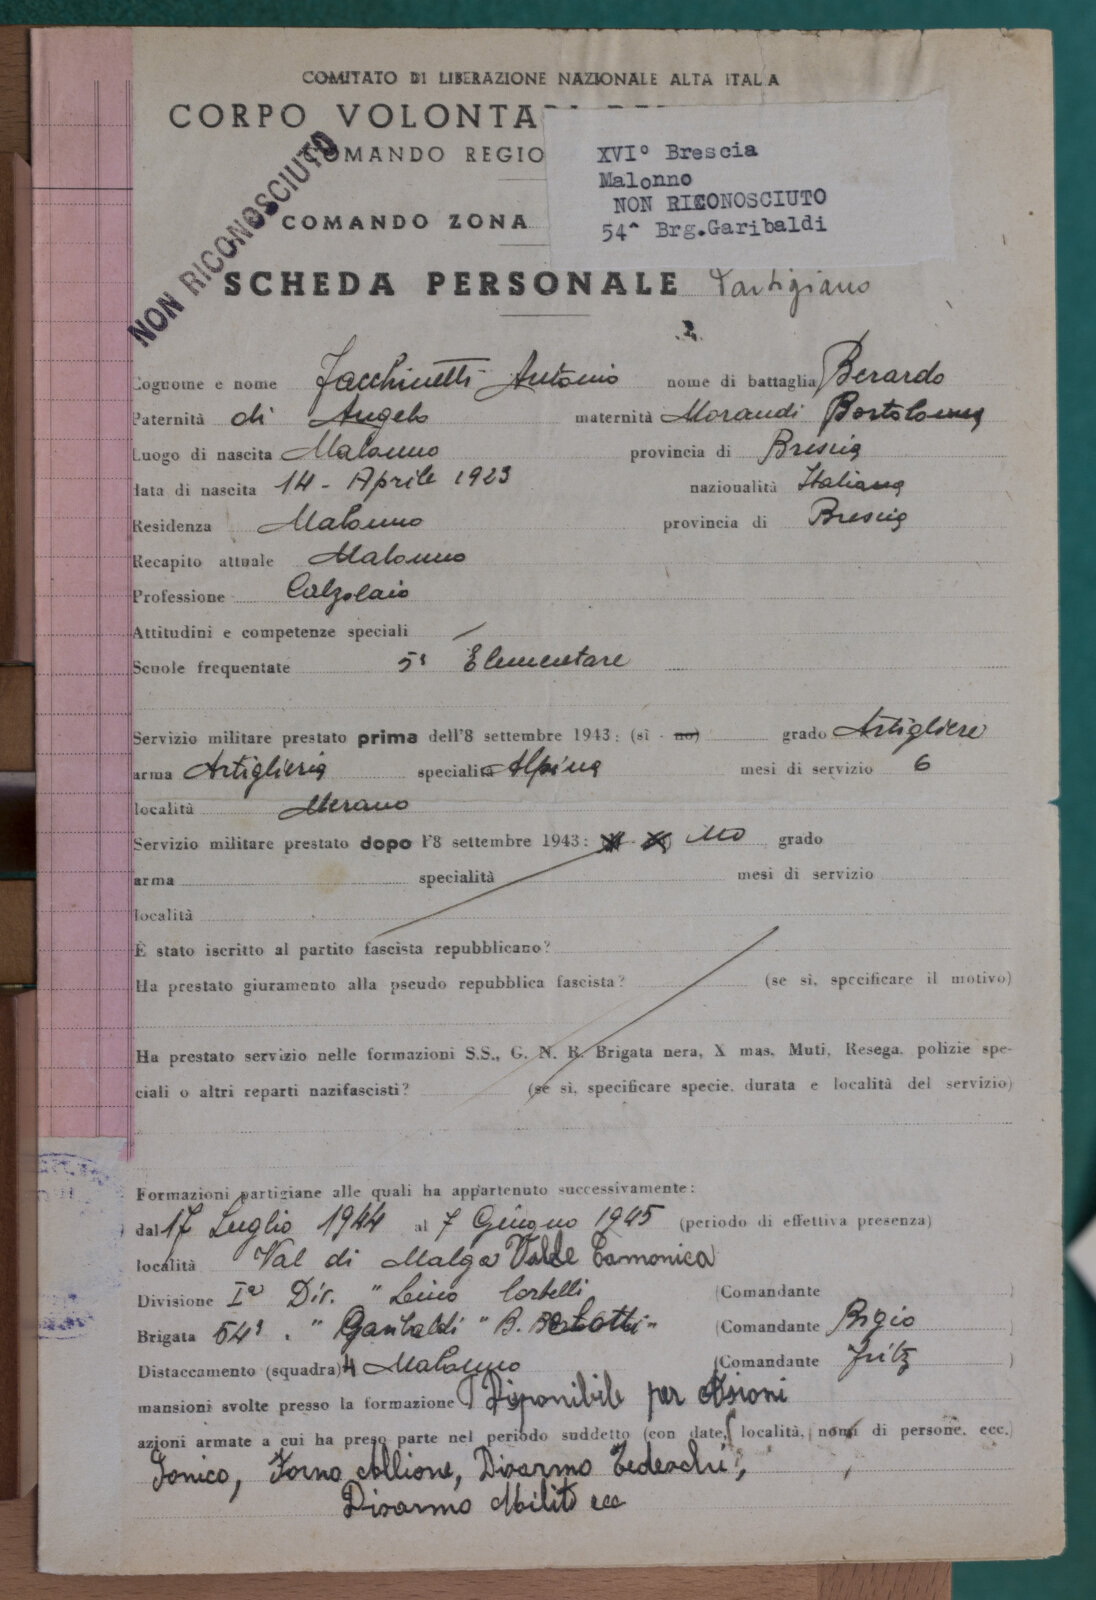 COMITATO DI LIBERAZIONE NAZIONALE ALTA ITALIA
CORPO VOLONTA
COMANDO REGIO
COMANDO ZONA
XVI° Brescia
Malonno
NON RICONOSCIUTO
54^ Brg.Garibaldi
NON RICONOSCIUTO
SCHEDA PERSONALE Partigiano
Cognome e nome Facchinetti Antonio nome di battaglia Berardo
Paternità di Angelo maternità Morandi Bortolomea
Luogo di nascita Malonno provincia di Brescia
data di nascita 14 - Aprile 1923 nazionalità Italiana
Residenza Malonno provincia di Brescia
Recapito attuale Malonno
Professione Calzolaio
Attitudini e competenze speciali
Scuole frequentate 5ª Elementare
Servizio militare prestato prima dell'8 settembre 1943: (sì - no) grado Artigliere
arma Artiglieria specialità Alpina mesi di servizio 6
località Merano
Servizio militare prestato dopo l'8 settembre 1943: No grado
arma specialità mesi di servizio
località
È stato iscritto al partito fascista repubblicano?
Ha prestato giuramento alla pseudo repubblica fascista? (se sì, specificare il motivo)
Ha prestato servizio nelle formazioni S.S., G. N. R. Brigata nera, X mas. Muti, Resega. polizie spe-
ciali o altri reparti nazifascisti? (se sì, specificare specie, durata e località del servizio)
Formazioni partigiane alle quali ha appartenuto successivamente:
dal 17 Luglio 1944 al 7 Giugno 1945 (periodo di effettiva presenza)
località Val di Malga Valle Camonica
Divisione Iª Div. " Lino Corbelli (Comandante )
Brigata 54ª . " Garibaldi " B. Belotti " (Comandante Bigio )
Distaccamento (squadra) 4 Malonno (Comandante Fritz )
mansioni svolte presso la formazione Disponibile per Asioni
azioni armate a cui ha preso parte nel periodo suddetto (con date, località, nomi di persone, ecc.)
Sonico, Forno Allione, Disarmo Tedeschi,
Disarmo Militi ecc